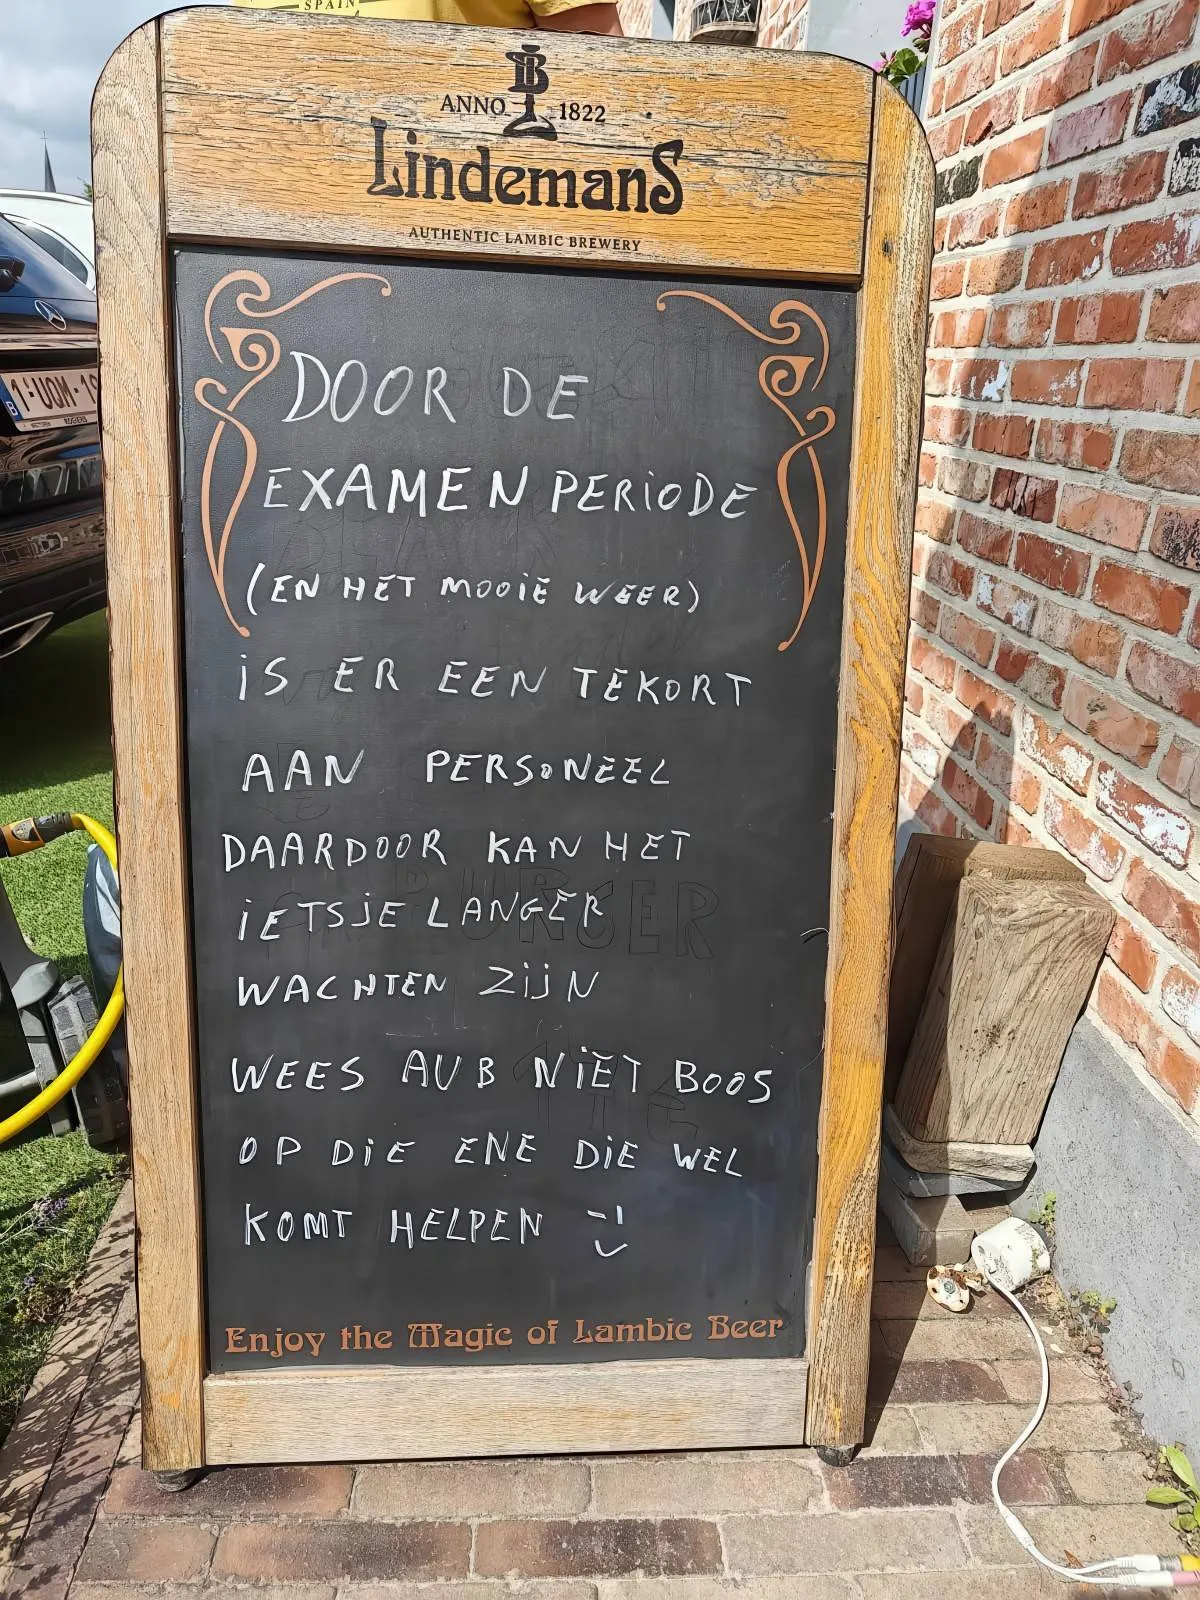 SPAIN
B
ANNO 1822
Lindemans
AUTHENTIC LAMBIC BREWERY
DOOR DE
EXAMEN PERIODE
(EN HET MOOIE WEER)
IS ER EEN TEKORT
AAN PERSONEEL
DAARDOOR KAN HET
IETSJE LANGER
WACHTEN ZIJN
WEES AUB NIET BOOS
OP DIE ENE DIE WEL
KOMT HELPEN
Enjoy the Magic of Lambic Beer
BURGER
B